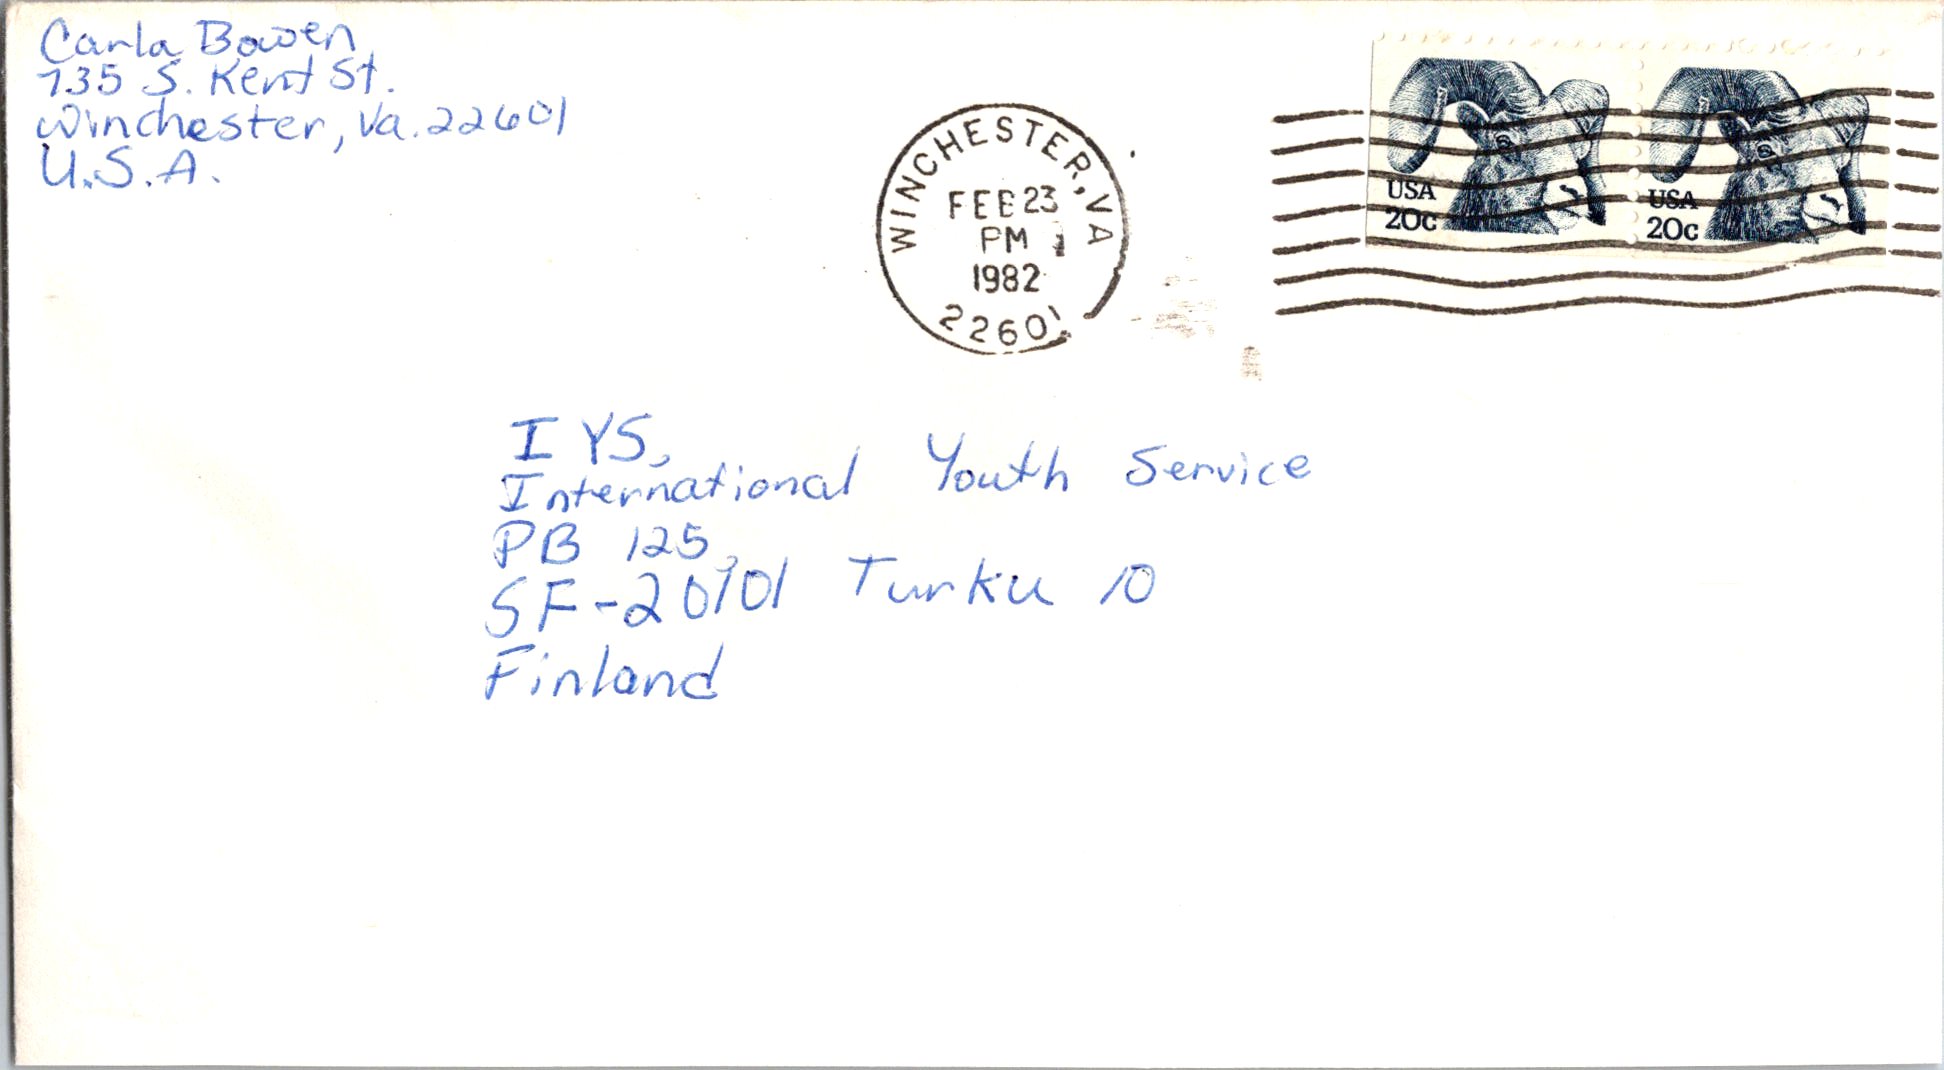 Carla Bowen
735 S. Kent St.
Winchester, Va. 22601
U.S.A.
WINCHESTER, VA
FEB 23
PM
1982
22601
USA
20c
USA
20c
I YS,
International Youth Service
PB 125,
SF-20101 Turku 10
Finland